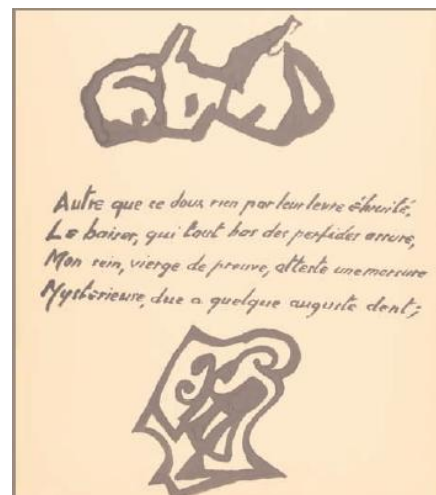 Autre que ce doux rien par leur levre ébruité,
Le baiser, qui tout bas des perfides assure,
Mon sein, vierge de preuve, atteste une morsure
Mysterieuse, due a quelque auguste dent;